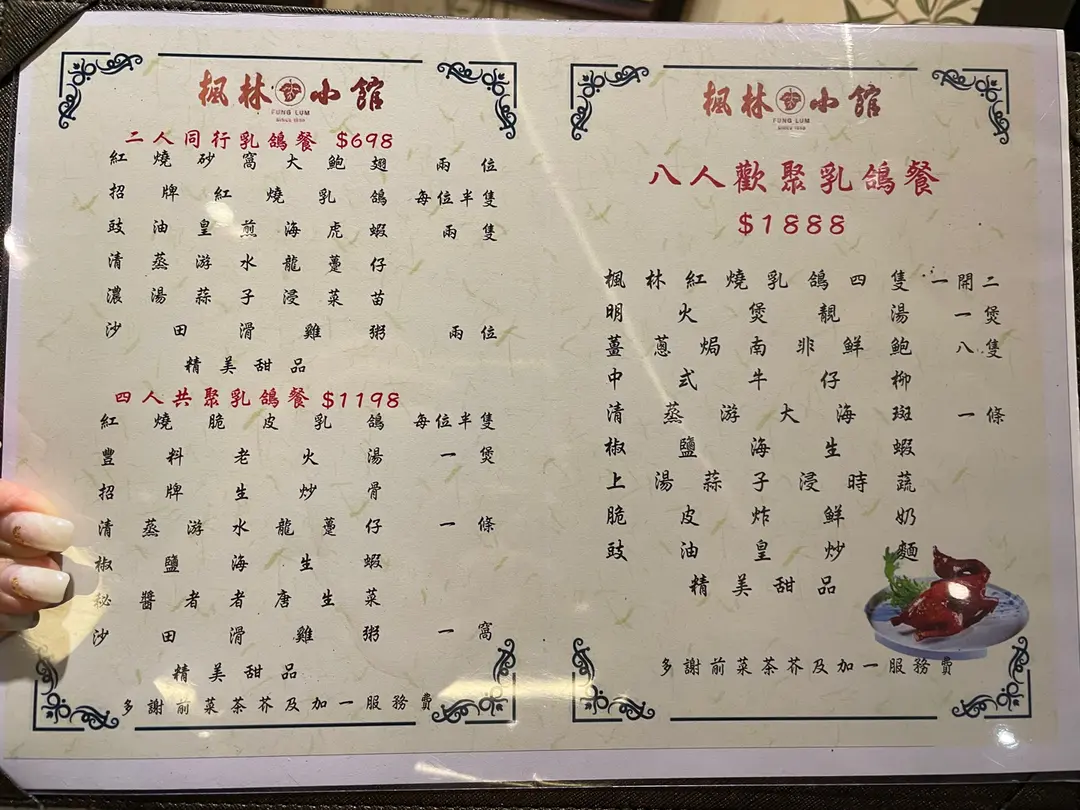 楓林小館
FUNG LUM
二人同行乳鴿餐 $698
紅燒砂窩大鮑翅 兩位
招牌紅燒乳鴿 每位半隻
豉油皇煎海虎蝦 兩隻
清蒸游水龍躉仔
濃湯蒜子浸菜苗
沙田滑雞粥 兩位
精美甜品
四人共聚乳鴿餐 $1198
紅燒脆皮乳鴿 每位半隻
豐料老火湯 一煲
招牌生炒骨
清蒸游水龍躉仔 一條
椒鹽海生蝦
秘醬者者唐生菜
沙田滑雞粥 一窩
精美甜品
多謝前菜茶芥及加一服務費
楓林小館
FUNG LUM
八人歡聚乳鴿餐
$1888
楓林紅燒乳鴿四隻 一開二
明火煲靚湯 一煲
薑蔥焗南非鮮鮑 八隻
中式牛仔柳
清蒸游大海斑 一條
椒鹽海生蝦
上湯蒜子浸時蔬
脆皮炸鮮奶
豉油皇炒麵
精美甜品
多謝前菜茶芥及加一服務費